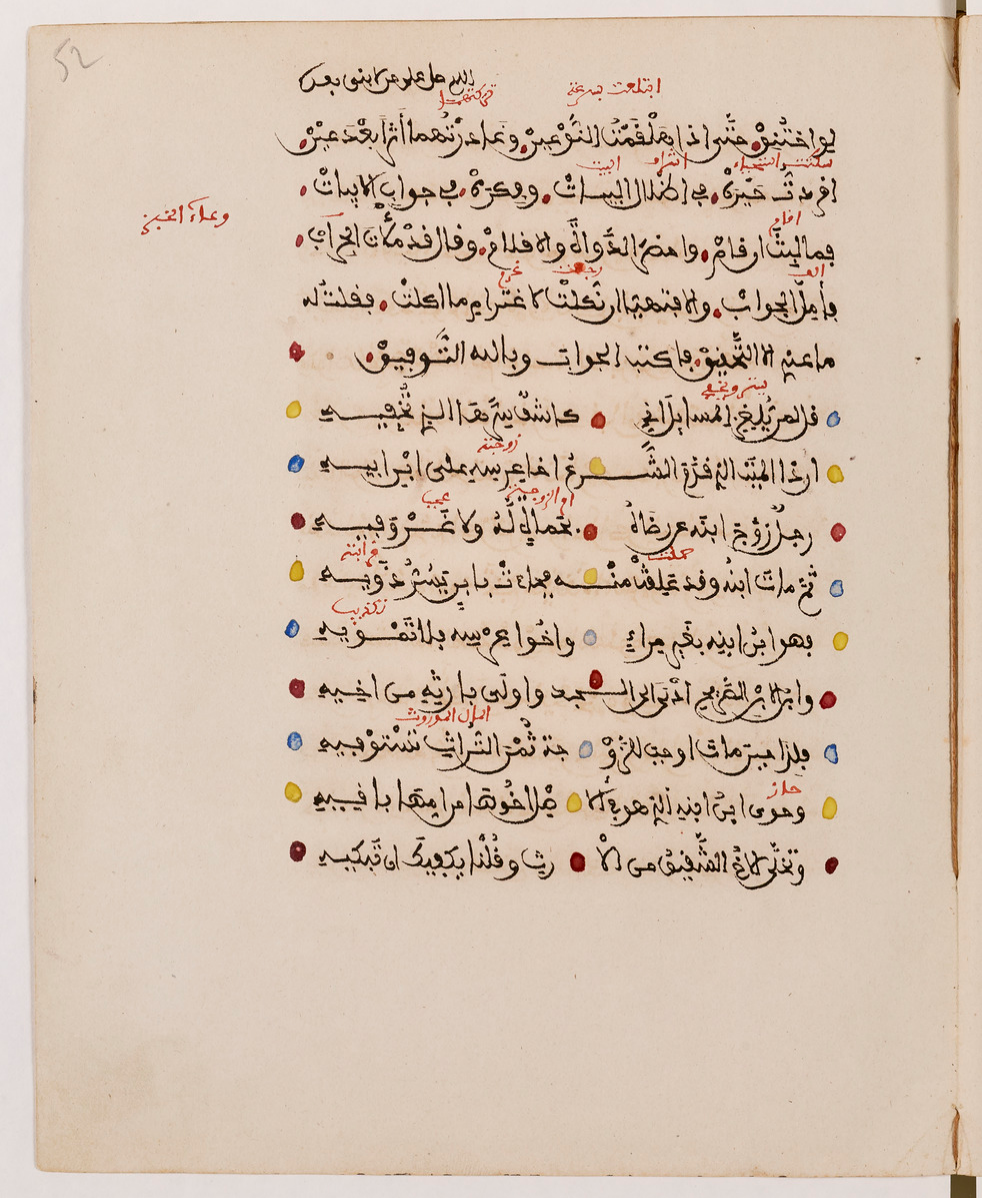 52
اللهم صل على من لا نبي بعده
ابتلعت بسرعة
تركتهما
لو اختنق. حتى اذا هلقمت النوعين. وغادرتهما أثرا بعد عين.
سكتت استحياء
اتيان
البيت
اقردت حيرة. في اظلال البيات. وفكرة. في جواب الابيات.
وعاء الخبز
اقام
فما لبث ان قام. واحضر الدواة والاقلام. وقال قد ملأت الجراب.
الق
رجعت
غرم
فأمل الجواب. والا فتهيأ ان نكلت لاغترام ما اكلت. فقلت له
ما عندي الا التحقيق. فاكتب الجواب وبالله التوفيق.
يستر ويخفي
قل لمن يلغز المسايل اني كاشف سرها الذي تخفيه
زوجته
ان ذا الميت الذي قدم الشرع اخا عرسه على ابن ابيه
ام الزوجة
عجب
رجل زوج ابنه عن رضاه بحماة له ولا غرو فيه
حملت
قرابته
ثم مات ابنه وقد علقت منه فجاءت بابن يسر ذويه
تكذيب
فهو ابن ابنه بغير مراء واخو عرسه بلا تمويه
وابن الابن الصريح ادنى الى الجد واولى بارثه من اخيه
المال الموروث
فلذا حين مات اوجب للزو جة ثمن التراث تستوفيه
حاز
وحوى ابن ابنه الذي هو في الا صل اخوها من امها باقيه
وتخلى الاخ الشقيق من الا رث وقلنا يكفيك ان تبكيه